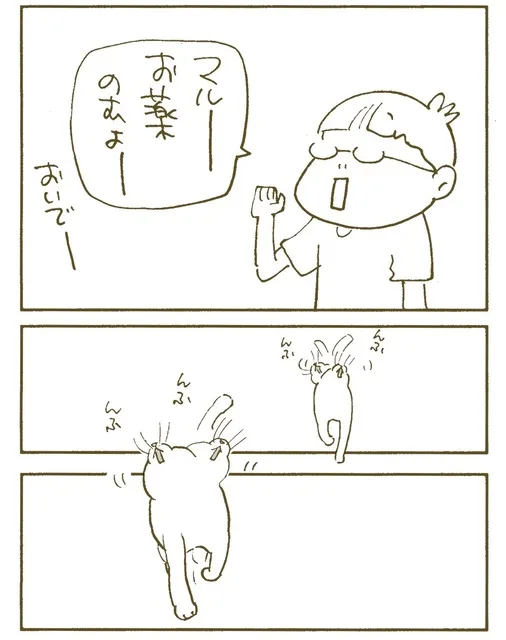 マルーー
お薬
のむよー
おいでー
んふ
んふ
んふ
んふ